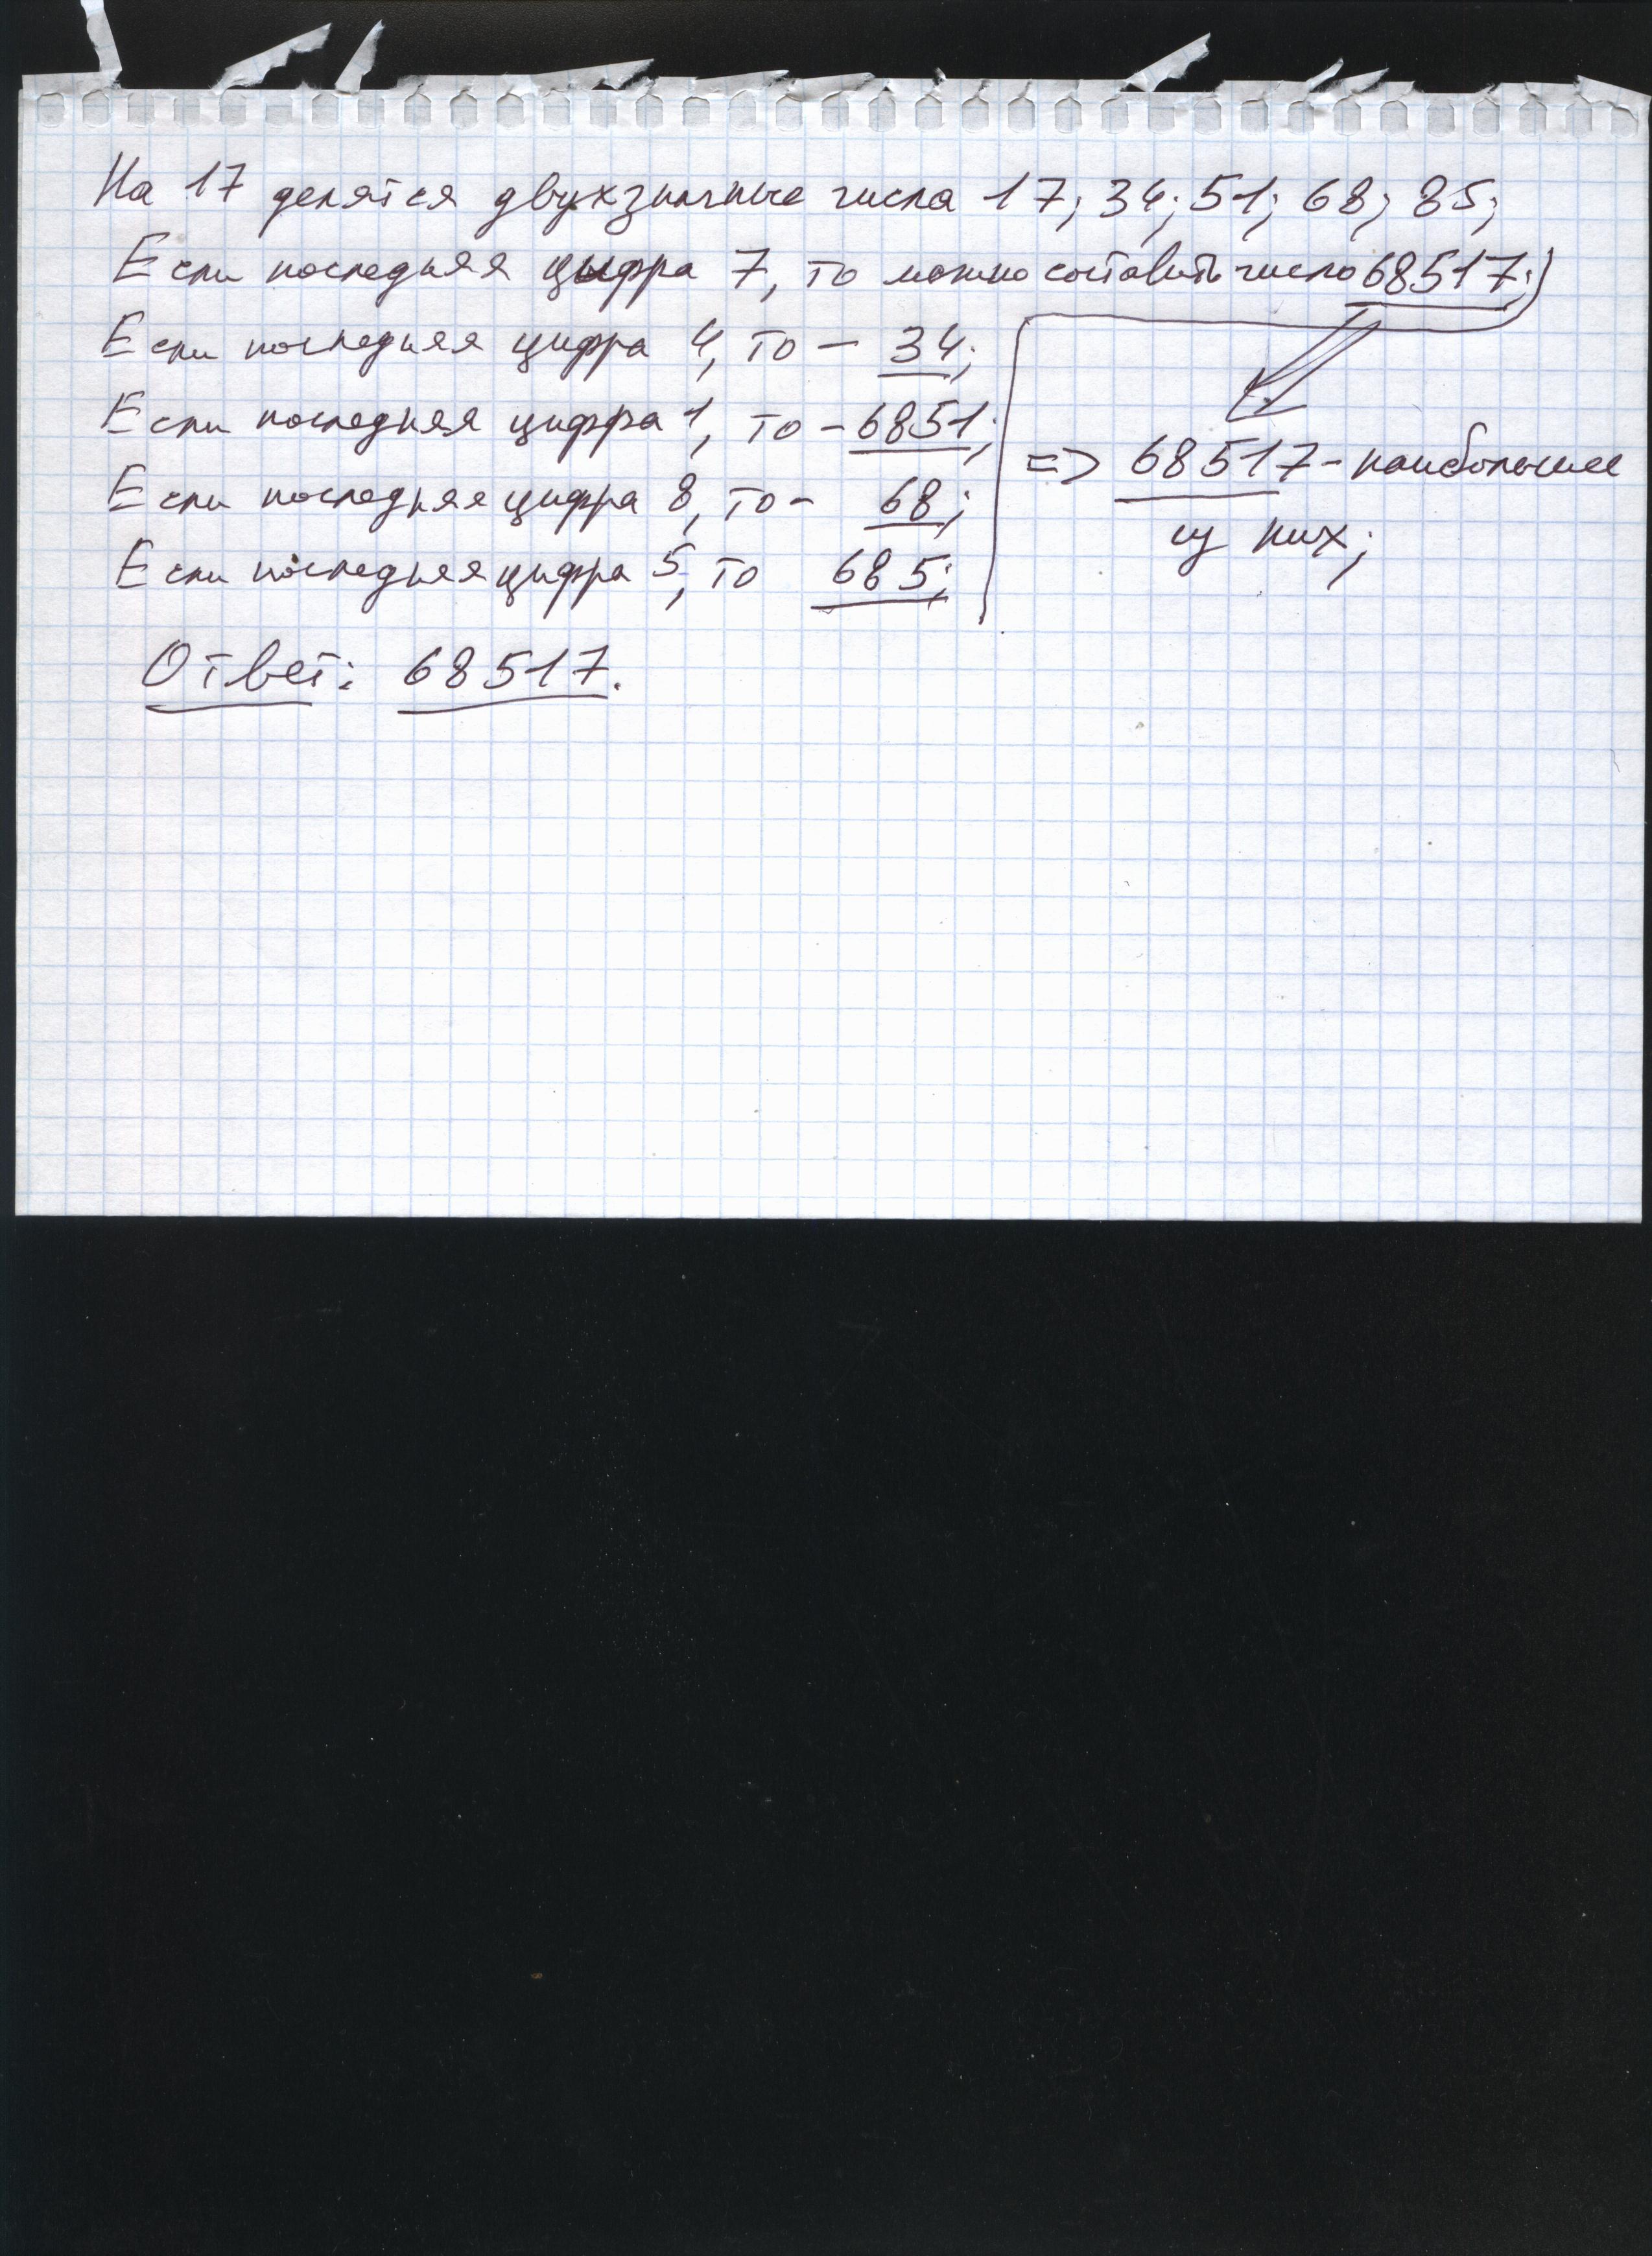 На 17 делятся двухзначные числа 17; 34; 51; 68; 85;
Если последняя цифра 7, то можно составить число 68517;
Если последняя цифра 4, то – 34;
Если последняя цифра 1, то – 6851;
Если последняя цифра 8, то – 68;
Если последняя цифра 5, то 685;
=> 68517 – наибольшее
из них;
Ответ: 68517.